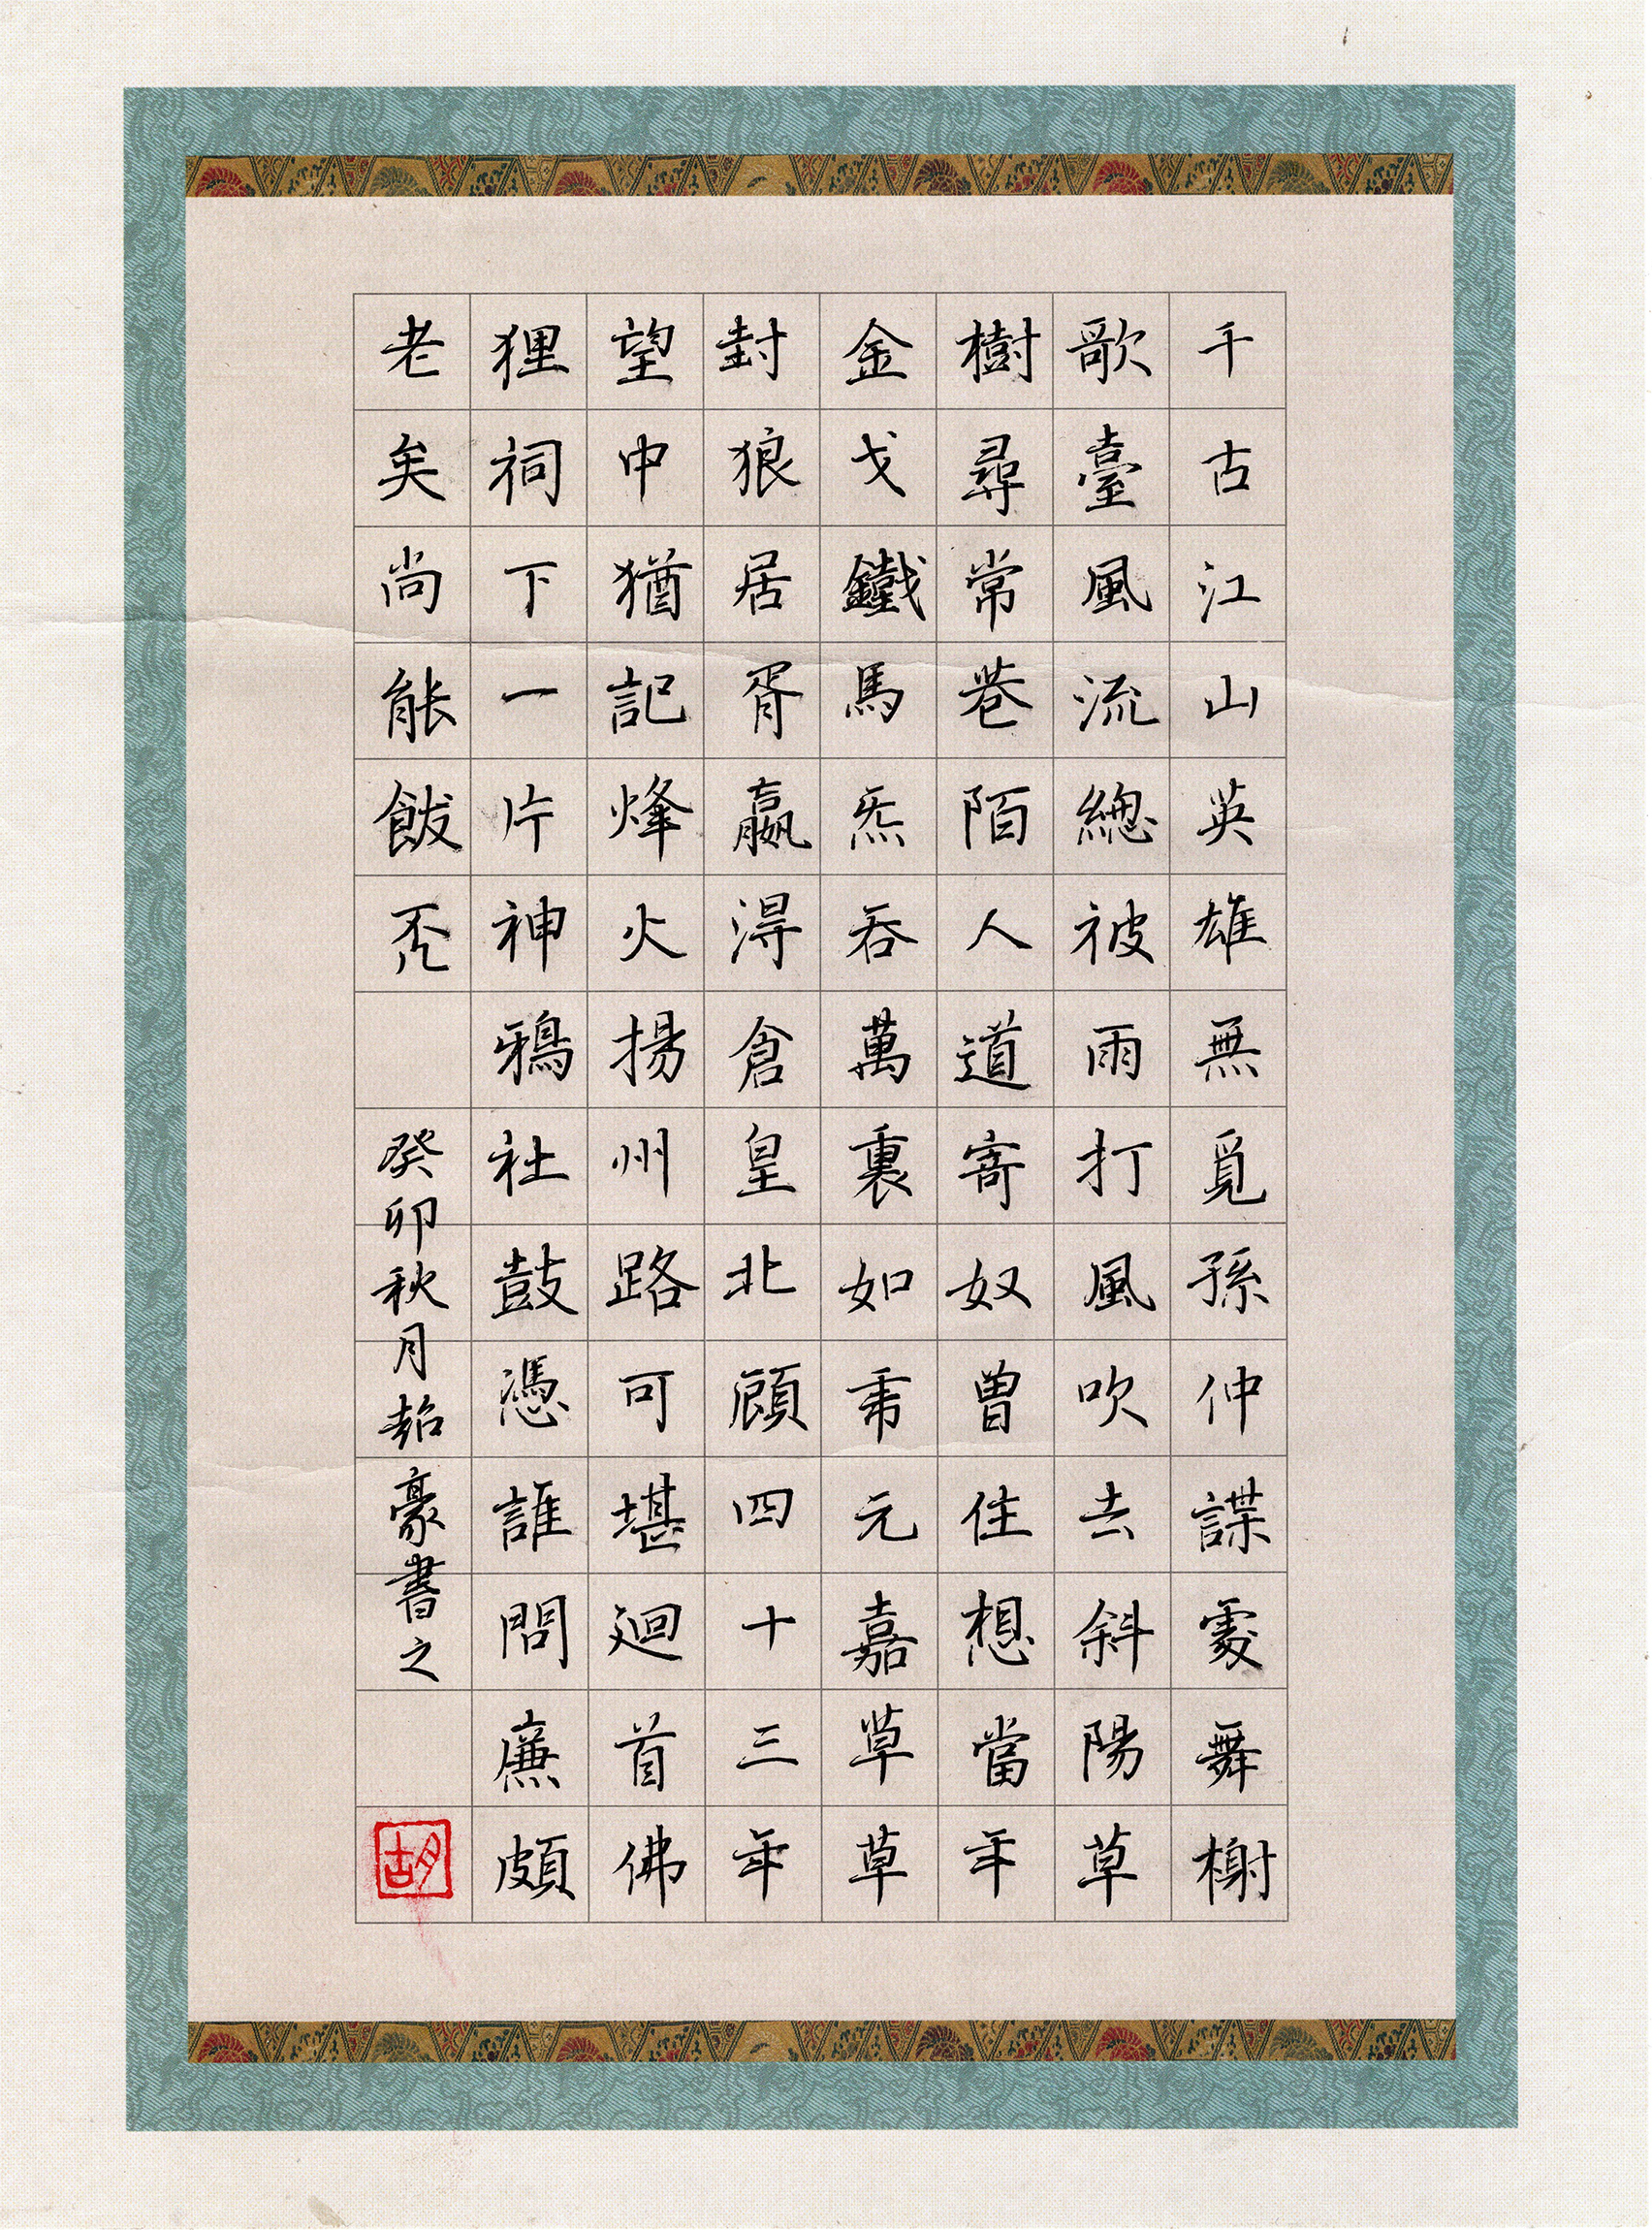 千古江山英雄無覓孫仲謀處舞榭
歌臺風流總被雨打風吹去斜陽草
樹尋常巷陌人道寄奴曾住想當年
金戈鐵馬炁吞萬裏如虎元嘉草草
封狼居胥贏得倉皇北顧四十三年
望中猶記烽火揚州路可堪廻首佛
狸祠下一片神鴉社鼓憑誰問廉頗
老矣尚能飯否
癸卯秋月豪書之
胡